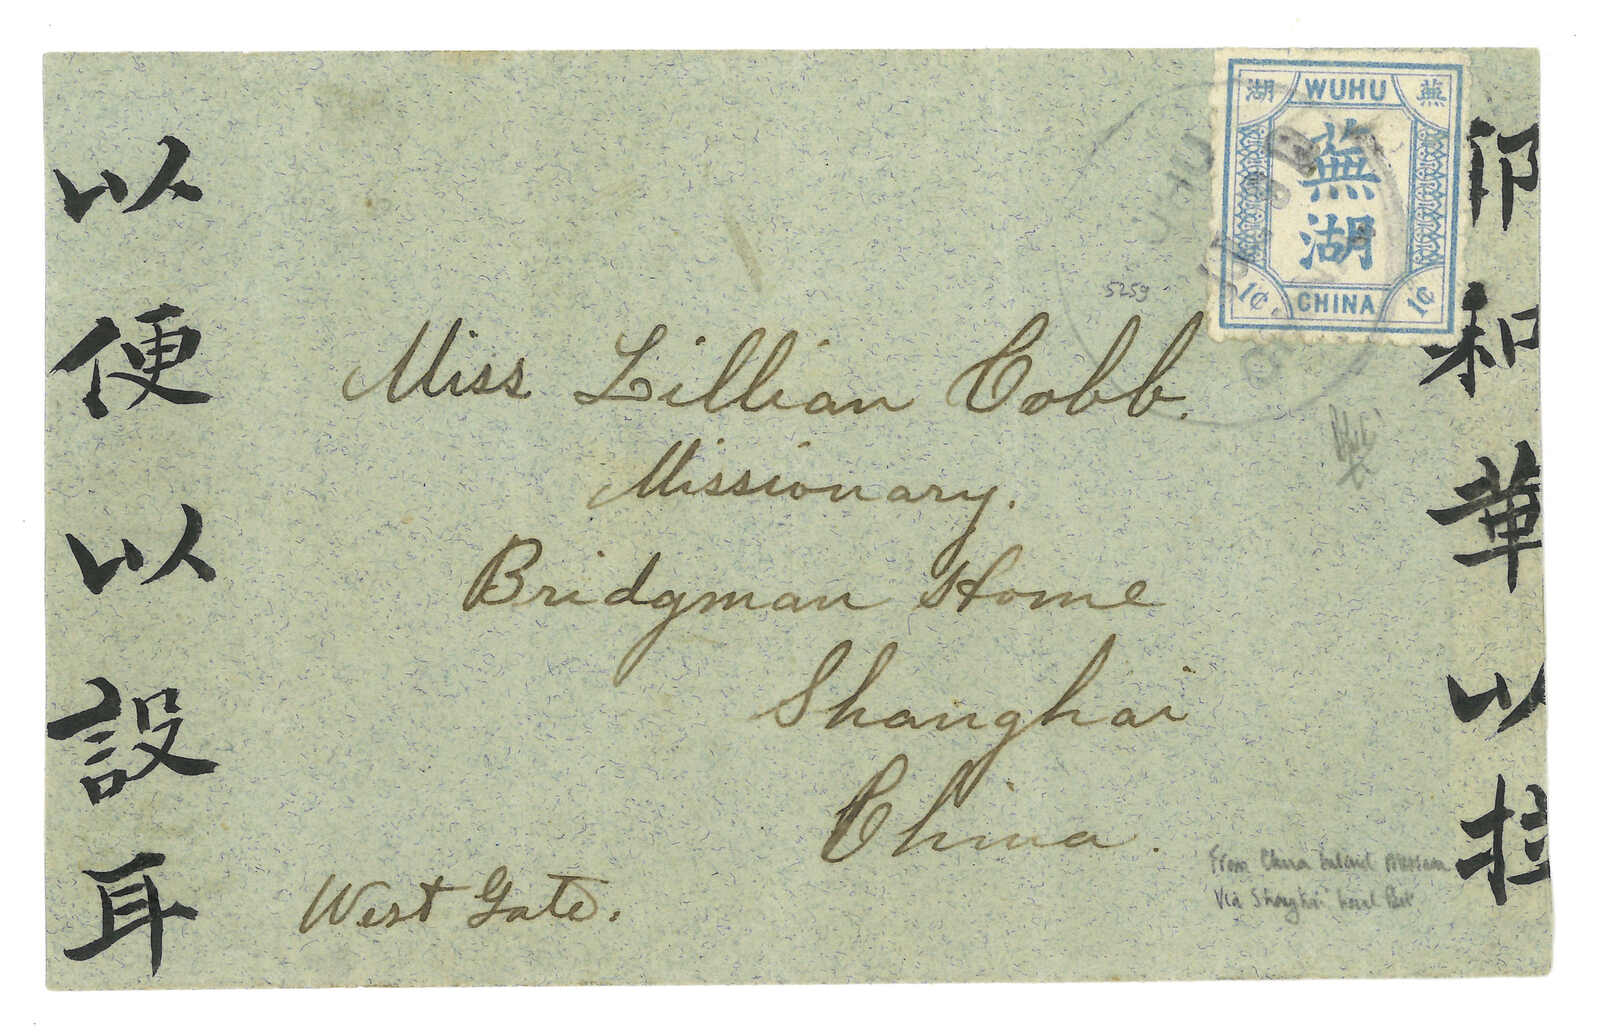 湖 WUHU 蕪
蕪湖
1¢ CHINA 1¢
5259
Miss Lillian Cobb.
Missionary.
Bridgman Home
Shanghai
China.
West Gate.
From China Inland Mission
Via Shanghai Local Post
和華以
以便以設耳